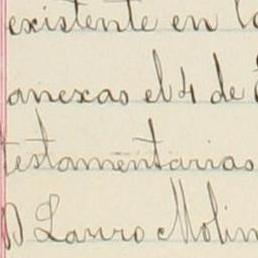 existente en l
anexas el 4 de
testamentarias
D Lauro Molin